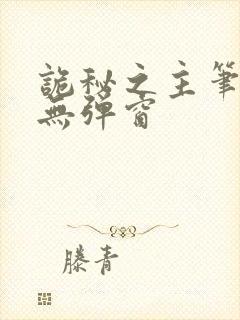 詭秘之主筆
無彈窗
滕青